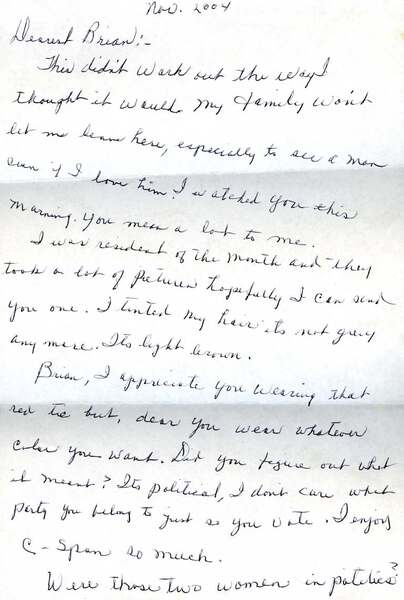 Nov. 2004
Dearest Brian:-
This didn't work out the way I
thought it would. My family won't
let me leave here, especially to see a man
even if I love him! I watched you this
morning. You mean a lot to me.
I was resident of the month and they
took a lot of pictures hopefully I can send
you one. I tinted my hair its not grey
any more. Its light brown.
Brian, I appreciate you wearing that
red tie but, dear you wear whatever
color you want. Did you figure out what
it meant? Its political, I don't care what
party you belong to just so you vote. I enjoy
C-Span so much.
Were those two women in politics?